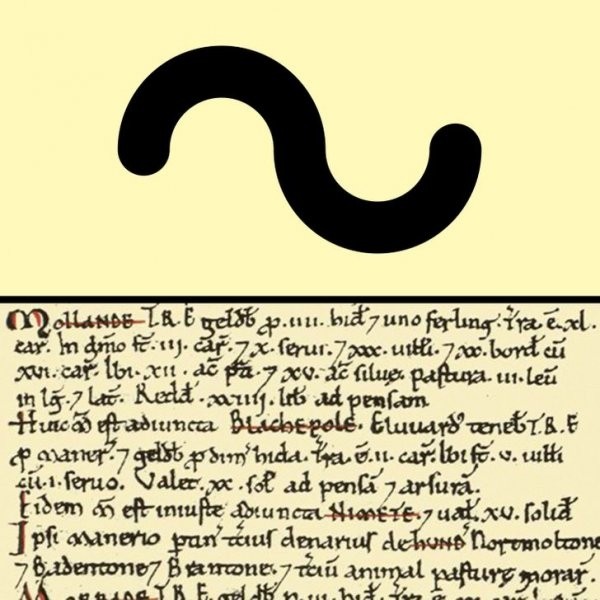 ~
Mollande T.R.E geldb̄ ꝓ .iiii. hid̄ ⁊ uno ferling. Tr̄a. ē .xl.
car̄. In dn̄io sт̄ .iii. car̄. ⁊ .x. serui. ⁊ xxx. uilli. ⁊ xx. bord̄ cū
xvi. car̄. Ibi .xii. ac̄ p̄ti. ⁊ xv. ac̄ siluę. Pastura .iii. leū
in lḡ. ⁊ lat̄. Redd̄ .xxiiii. lib̄ ad pensam
Huic m̄ est adiuncta Blachepole. Eluuard' teneb̄ T.R.E
ꝓ maner̄. ⁊ geldb̄ ꝓ dim̄ hida. Tr̄a. ē .ii. car̄. Ibi sт̄ .v. uilli
cū .i. seruo. Valet. xx. sol' ad pensā ⁊ arsurā.
Eidem m̄ est iniuste adiuncta Nimete. ⁊ ual'. xv. solid̄
Ipsi manerio ꝑtin̄ tcius denarius de hund' Nortmoltone
⁊ Badentone ⁊ Brantone. ⁊ tciū animal pasturę morar̄.